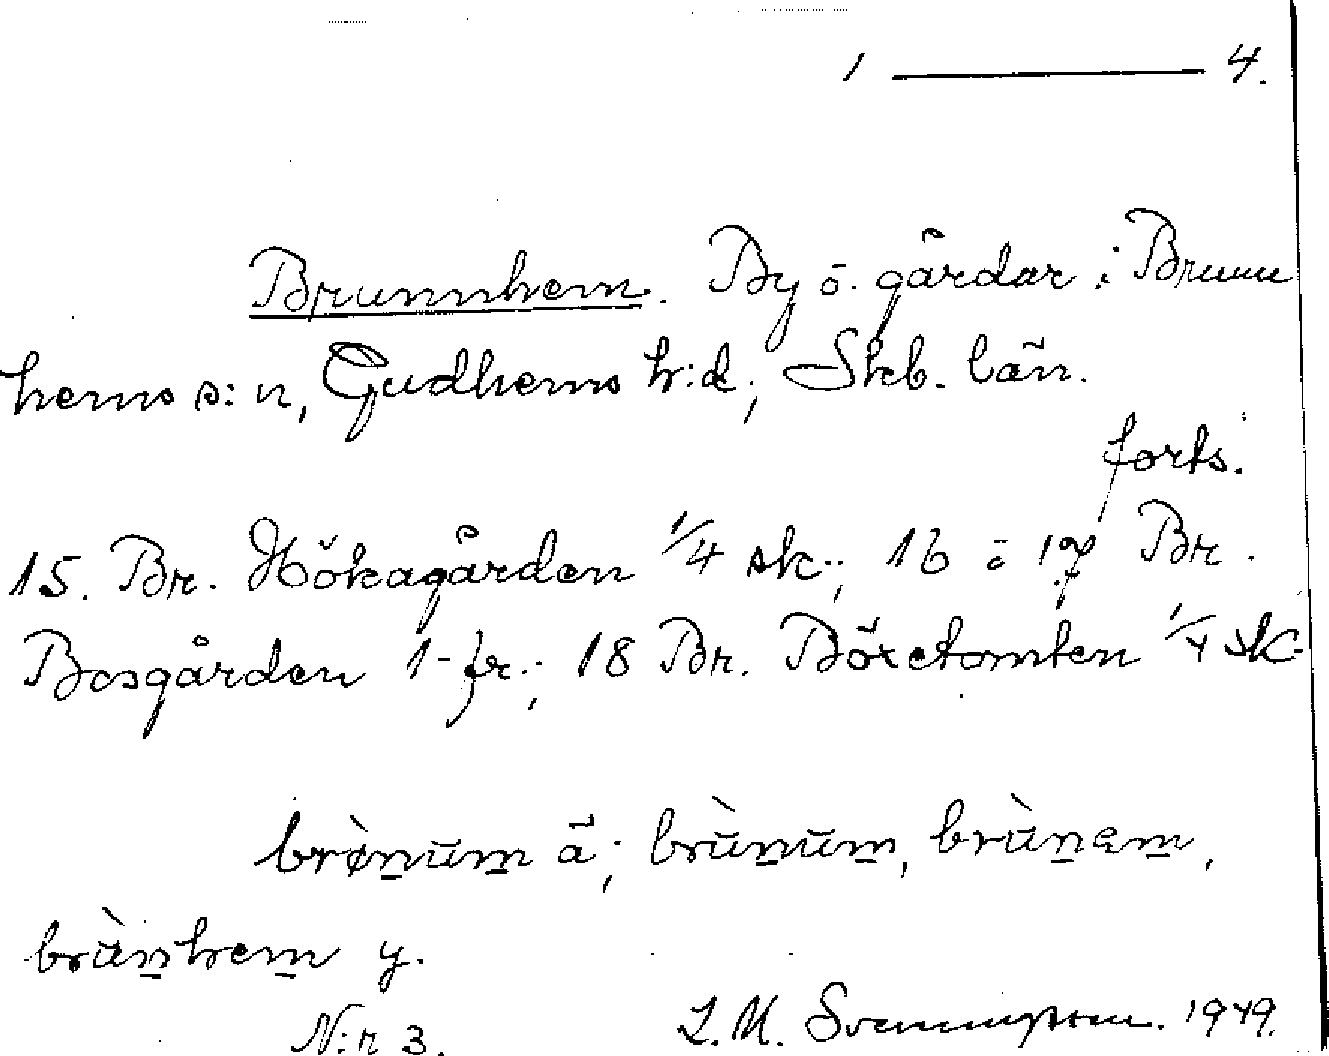 1 ——— 4.
Brunnhem. By o. gårdar i Brunn
hems s:n, Gudhems h:d, Skb. län.
forts.
15. Br. Hökagården 1/4 sk.; 16 o 17 Br.
Bosgården 1 fr.; 18 Br. Böxetomten 1/4 sk.
brø̀nūm ä; brùnūm, brùnam,
brùnhem y.
N:r 3. Svenningsson. 1949.